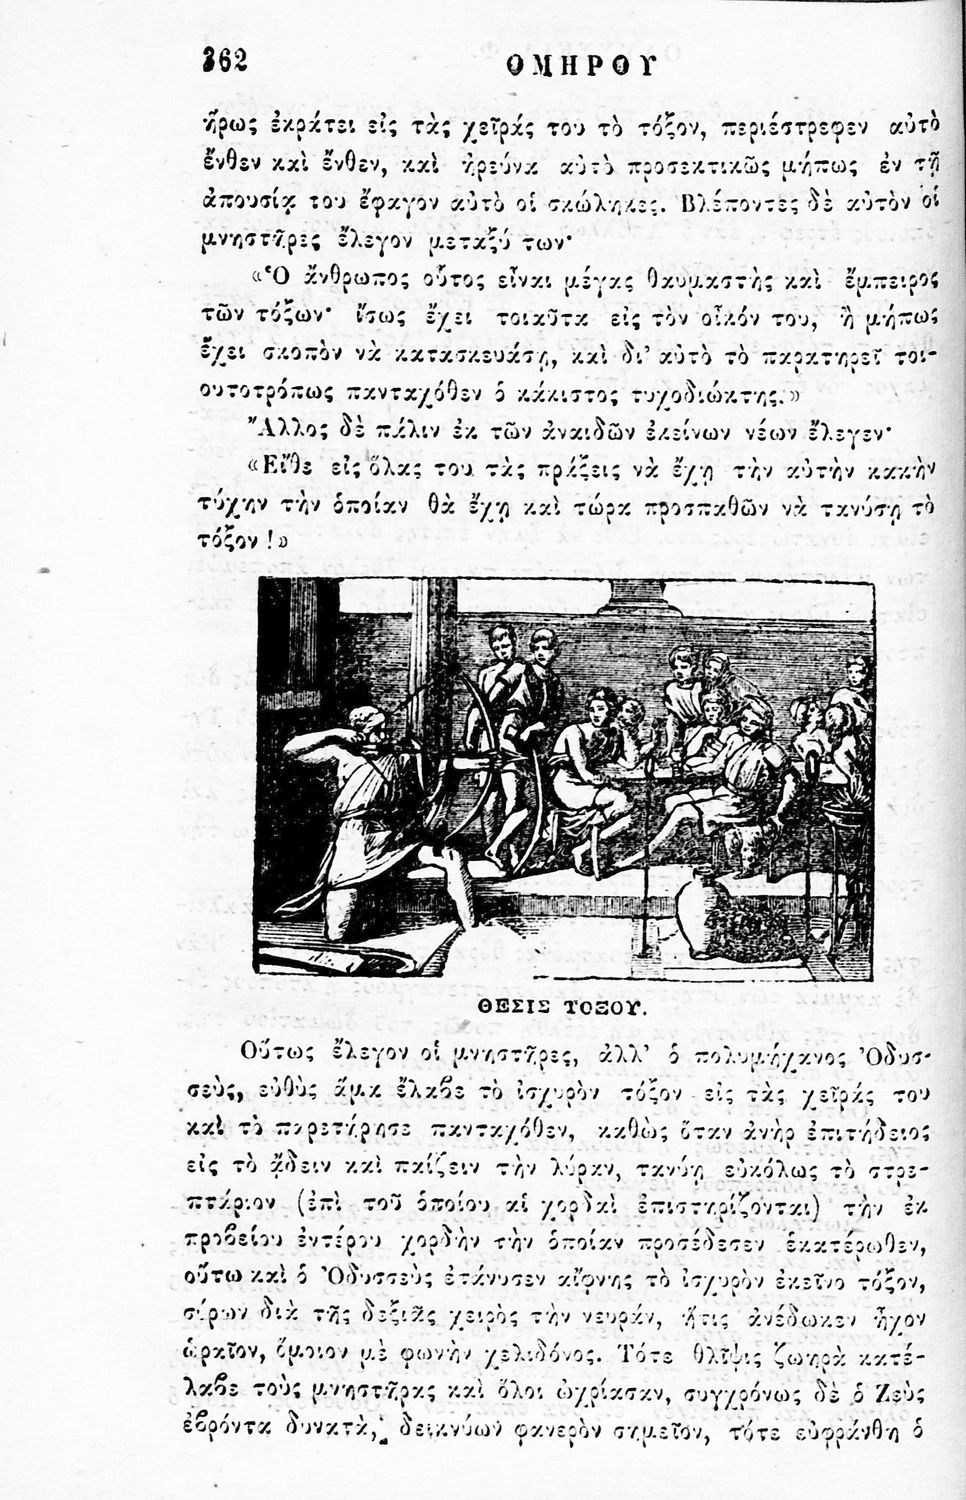 362 ΟΜΗΡΟΥ
ἥρως ἐκράτει εἰς τὰς χεῖράς του τὸ τόξον, περιέστρεφεν αὐτὸ
ἔνθεν καὶ ἔνθεν, καὶ ἠρεύνα αὐτὸ προσεκτικῶς μήπως ἐν τῇ
ἀπουσίᾳ του ἔφαγον αὐτὸ οἱ σκώληκες. Βλέποντες δὲ αὐτὸν οἱ
μνηστῆρες ἔλεγον μεταξύ των·
«Ὁ ἄνθρωπος οὗτος εἶναι μέγας θαυμαστὴς καὶ ἔμπειρος
τῶν τόξων· ἴσως ἔχει τοιαῦτα εἰς τὸν οἶκόν του, ἢ μήπως
ἔχει σκοπὸν νὰ κατασκευάσῃ, καὶ δι’ αὐτὸ τὸ παρατηρεῖ τοι-
ουτοτρόπως πανταχόθεν ὁ κάκιστος τυχοδιώκτης.»
Ἄλλος δὲ πάλιν ἐκ τῶν ἀναιδῶν ἐκείνων νέων ἔλεγεν·
«Εἴθε εἰς ὅλας του τὰς πράξεις νὰ ἔχῃ τὴν αὐτὴν κακὴν
τύχην τὴν ὁποίαν θὰ ἔχῃ καὶ τώρα προσπαθῶν νὰ τανύσῃ τὸ
τόξον!»
ΘΕΣΙΣ ΤΟΞΟΥ.
Οὕτως ἔλεγον οἱ μνηστῆρες, ἀλλ’ ὁ πολυμήχανος Ὀδυσ-
σεὺς, εὐθὺς ἅμα ἔλαβε τὸ ἰσχυρὸν τόξον εἰς τὰς χεῖράς του
καὶ τὸ παρετήρησε πανταχόθεν, καθὼς ὅταν ἀνὴρ ἐπιτήδειος
εἰς τὸ ᾄδειν καὶ παίζειν τὴν λύραν, τανύῃ εὐκόλως τὸ στρε-
πτάριον (ἐπὶ τοῦ ὁποίου αἱ χορδαὶ ἐπιστηρίζονται) τὴν ἐκ
προβείου ἐντέρου χορδὴν τὴν ὁποίαν προσέδεσεν ἑκατέρωθεν,
οὕτω καὶ ὁ Ὀδυσσεὺς ἐτάνυσεν αἴφνης τὸ ἰσχυρὸν ἐκεῖνο τόξον,
σύρων διὰ τῆς δεξιᾶς χειρὸς τὴν νευράν, ἥτις ἀνέδωκεν ἦχον
ὡραῖον, ὅμοιον μὲ φωνὴν χελιδόνος. Τότε θλῖψις ζωηρὰ κατέ-
λαβε τοὺς μνηστῆρας καὶ ὅλοι ὠχρίασαν, συγχρόνως δὲ ὁ Ζεὺς
ἐβρόντα δυνατὰ, δεικνύων φανερὸν σημεῖον, τότε εὐφράνθη ὁ